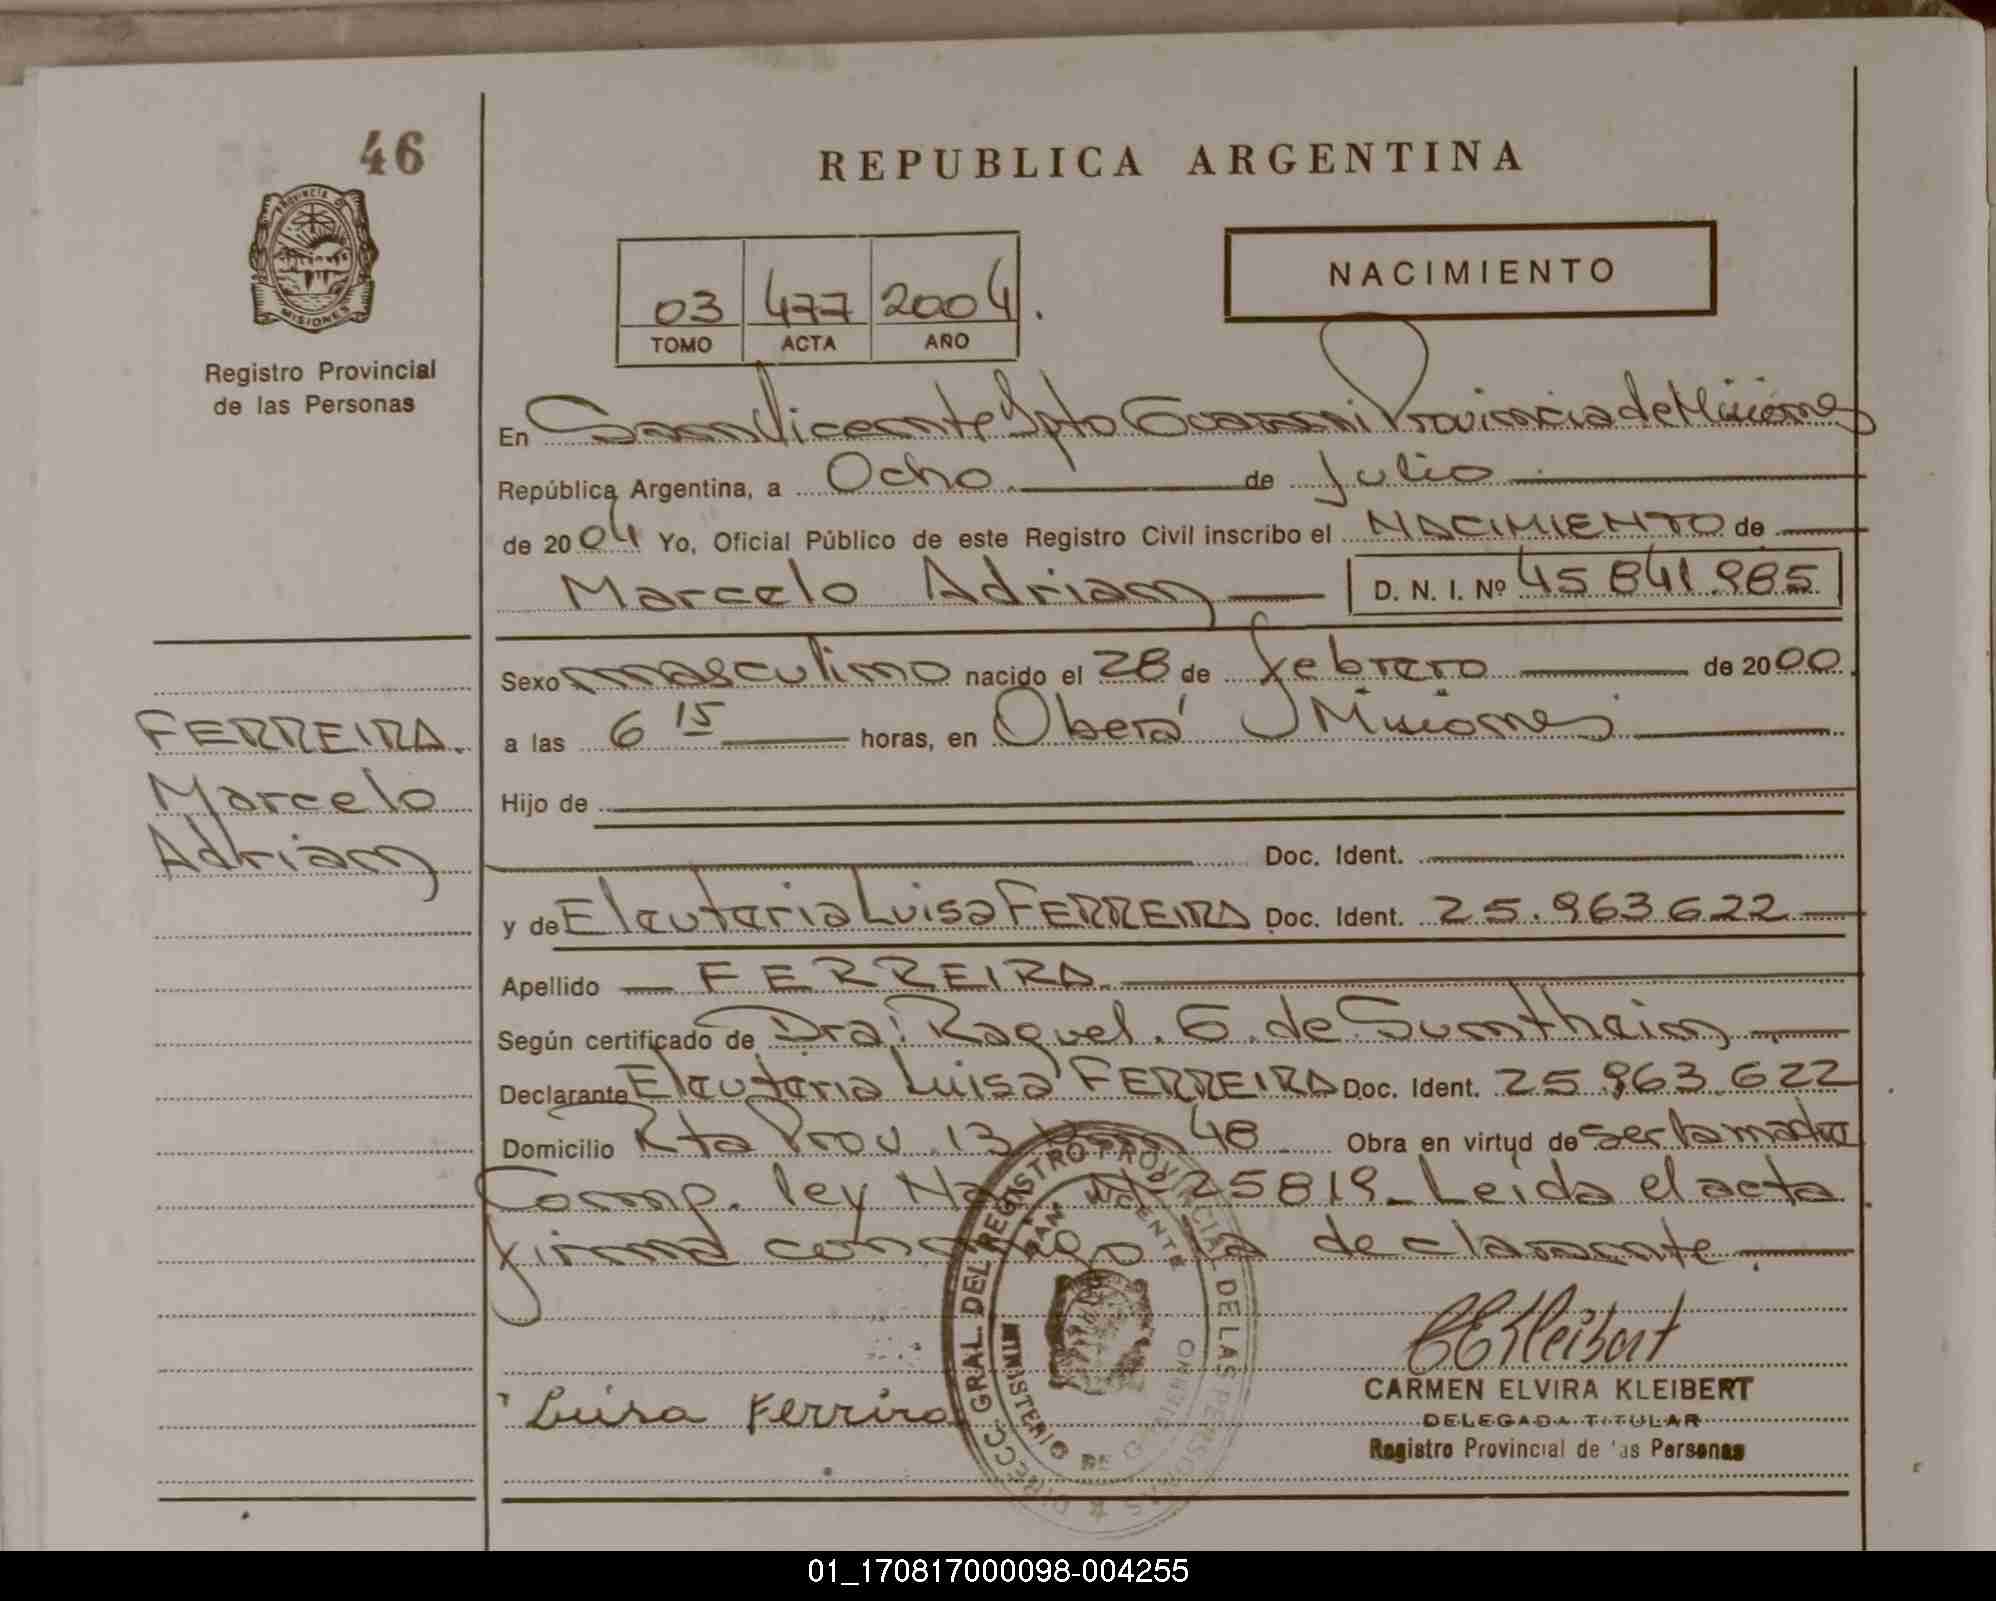 46
REPUBLICA ARGENTINA
PROVINCIA DE
MISIONES
Registro Provincial
de las Personas
03 477 2004.
TOMO ACTA AÑO
NACIMIENTO
En San Vicente Dpto Guarani Provincia de Misiones
República Argentina, a Ocho de Julio
de 2004 Yo, Oficial Público de este Registro Civil inscribo el NACIMIENTO de
Marcelo Adrian D. N. I. Nº 45 841.985
Sexo masculino nacido el 28 de febrero de 2000
a las 6 15 horas, en Oberá Misiones
FERREIRA.
Marcelo
Adrian
Hijo de
Doc. Ident.
y de Eleuteria Luisa FERREIRA Doc. Ident. 25.963 622
Apellido FERREIRA.
Según certificado de Dra: Raquel. G. de
Declarante Eleuteria Luisa FERREIRA Doc. Ident. 25 963 622
Domicilio Rta Prov. 13 48 Obra en virtud de ser la madre
Comp. ley 25819_ Leida el acta
firma conmigo la declarante.
Luisa Ferrira
DIRECC. GRAL. DEL REGISTRO PROVINCIAL DE LAS PERSONAS
SAN VICENTE
MINISTERIO DE GOBIERNO
CARMEN ELVIRA KLEIBERT
DELEGADA TITULAR
Registro Provincial de las Personas
01_170817000098-004255